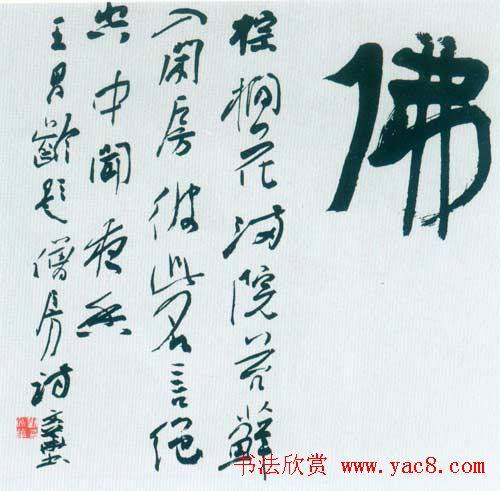 佛
棕榈花满院苔蘚
入闲房彼此名言绝
空中聞異香
王昌齡题僧房诗
书法欣赏 www.yac8.com